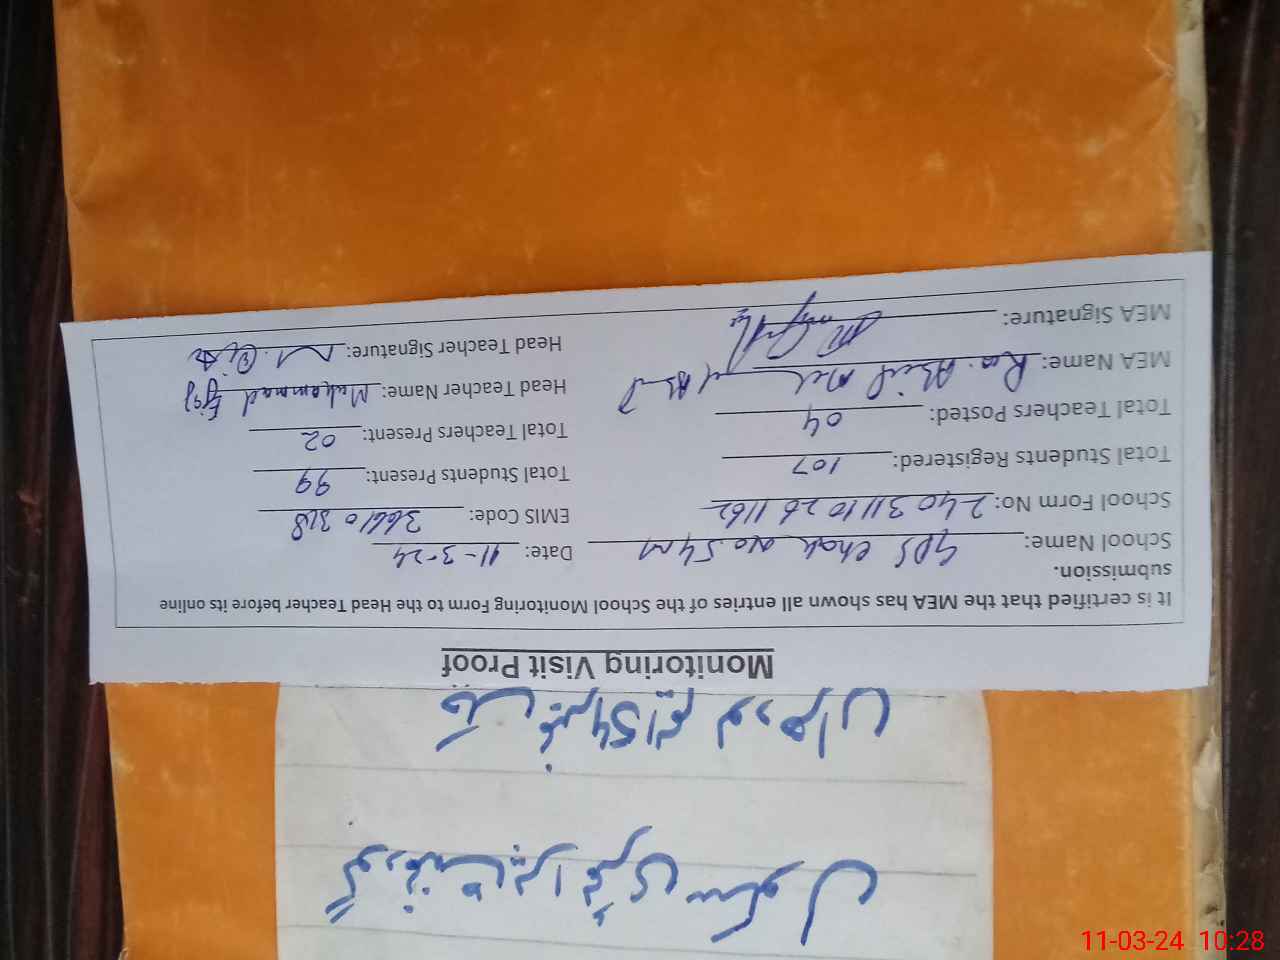 گورنمنٹ پرائمری سکول
چک نمبر 54 ایم لودھراں
Monitoring Visit Proof
It is certified that the MEA has shown all entries of the School Monitoring Form to the Head Teacher before its online
submission.
School Name: GPS Chak No. 54 M Date: 11-3-24
School Form No: EMIS Code:
Total Students Registered: 107 Total Students Present: 99
Total Teachers Posted: 04 Total Teachers Present: 02
MEA Name: Head Teacher Name: Muhammad Ejaz
MEA Signature: Head Teacher Signature:
11-03-24 10:28